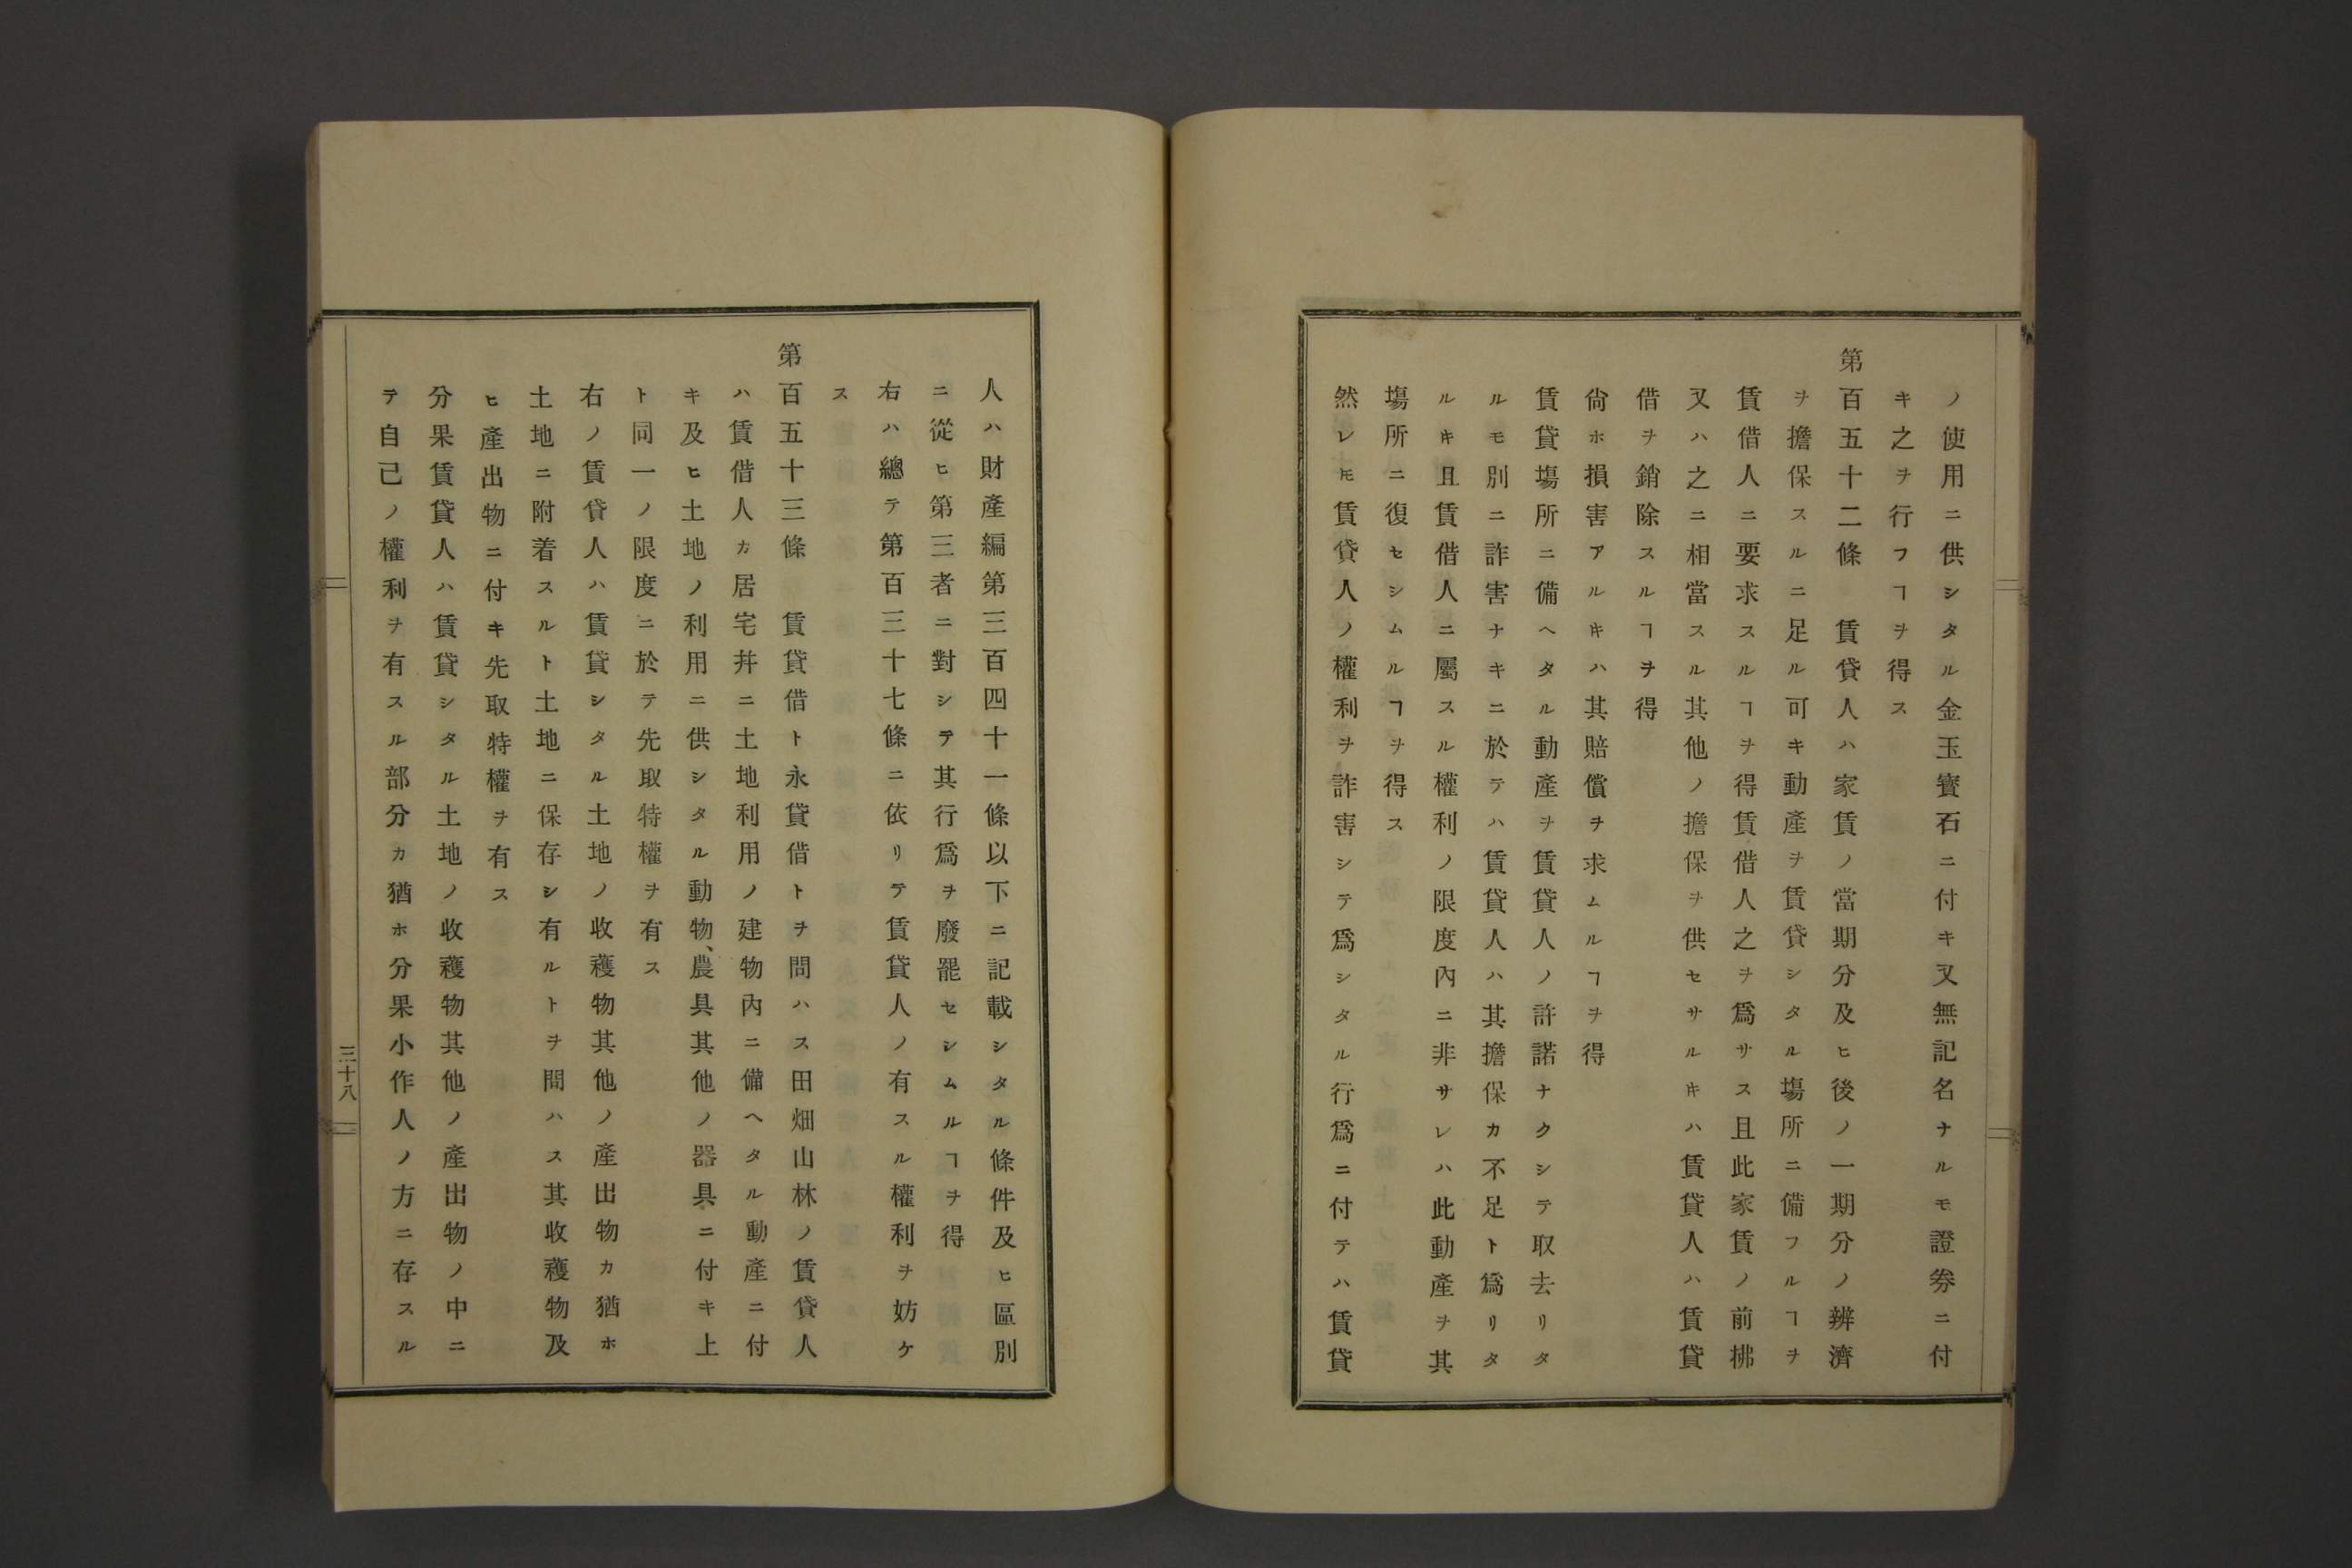 ノ使用ニ供シタル金玉寳石ニ付キ又無記名ナルモ證券ニ付
キ之ヲ行フヿヲ得ス
第百五十二條　賃貸人ハ家賃ノ當期分及ヒ後ノ一期分ノ辨濟
ヲ擔保スルニ足ル可キ動產ヲ賃貸シタル塲所ニ備フルヿヲ
賃借人ニ要求スルヿヲ得賃借人之ヲ爲サス且此家賃ノ前拂
又ハ之ニ相當スル其他ノ擔保ヲ供セサルキハ賃貸人ハ賃貸
借ヲ銷除スルヿヲ得
尙ホ損害アルキハ其賠償ヲ求ムルヿヲ得
賃貸塲所ニ備ヘタル動產ヲ賃貸人ノ許諾ナクシテ取去リタ
ルモ別ニ詐害ナキニ於テハ賃貸人ハ其擔保カ不足ト爲リタ
ルキ且賃借人ニ屬スル權利ノ限度內ニ非サレハ此動產ヲ其
塲所ニ復セシムルヿヲ得ス
然レ𪜈賃貸人ノ權利ヲ詐害シテ爲シタル行爲ニ付テハ賃貸
人ハ財產編第三百四十一條以下ニ記載シタル條件及ヒ區別
ニ從ヒ第三者ニ對シテ其行爲ヲ廢罷セシムルヿヲ得
右ハ總テ第百三十七條ニ依リテ賃貸人ノ有スル權利ヲ妨ケ
ス
第百五十三條　賃貸借ト永貸借トヲ問ハス田畑山林ノ賃貸人
ハ賃借人カ居宅幷ニ土地利用ノ建物內ニ備ヘタル動產ニ付
キ及ヒ土地ノ利用ニ供シタル動物、農具其他ノ器具ニ付キ上
ト同一ノ限度ニ於テ先取特權ヲ有ス
右ノ賃貸人ハ賃貸シタル土地ノ收穫物其他ノ產出物カ猶ホ
土地ニ附着スルト土地ニ保存シ有ルトヲ問ハス其收穫物及
ヒ產出物ニ付キ先取特權ヲ有ス
分果賃貸人ハ賃貸シタル土地ノ收穫物其他ノ產出物ノ中ニ
テ自己ノ權利ヲ有スル部分カ猶ホ分果小作人ノ方ニ存スル
三十八